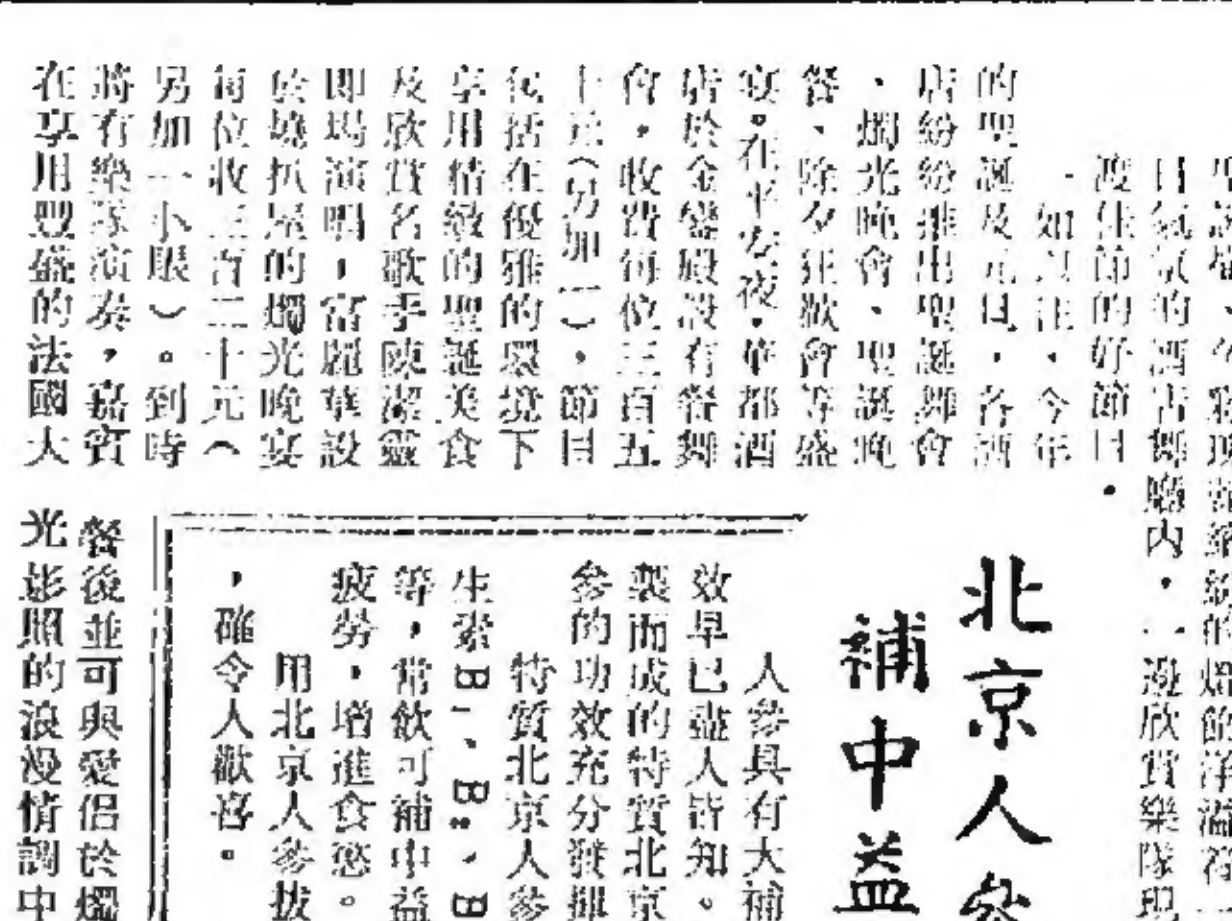 日氣氛的酒吧舞廳內，一邊欣賞樂隊現
渡佳節的好節目。
如以往，今年
的聖誕及元旦，各酒
店紛紛推出聖誕舞會
、燭光晚會、聖誕晚
餐、除夕狂歡會等盛
宴。在平安夜，華都酒
店於金鑾殿設有餐舞
會，收費每位三百五
十元（另加一），節目
包括在優雅的環境下
享用精緻的聖誕美食
及欣賞名歌手陳潔靈
即場演唱，富麗華設
於燒扒屋的燭光晚宴
每位收三百二十元（
另加一小賬）。到時
將有樂隊演奏，嘉賓
在享用豐盛的法國大
餐後並可與愛侶於燭
光影照的浪漫情調中
北京人參
補中益
人參具有大補
效早已盡人皆知。
製而成的特質北京
參的功效充分發揮
特質北京人參
生素B1、B2、B
等，常飲可補中益
疲勞，增進食慾。
用北京人參拔
，確令人歡喜。